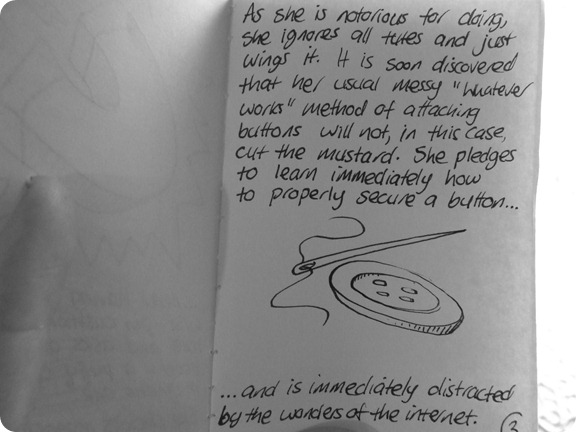 As she is notorious for doing,
she ignores all tutes and just
wings it. It is soon discovered
that her usual messy "whatever
works" method of attaching
buttons will not, in this case,
cut the mustard. She pledges
to learn immediately how
to properly secure a button...
...and is immediately distracted
by the wonders of the internet.
3